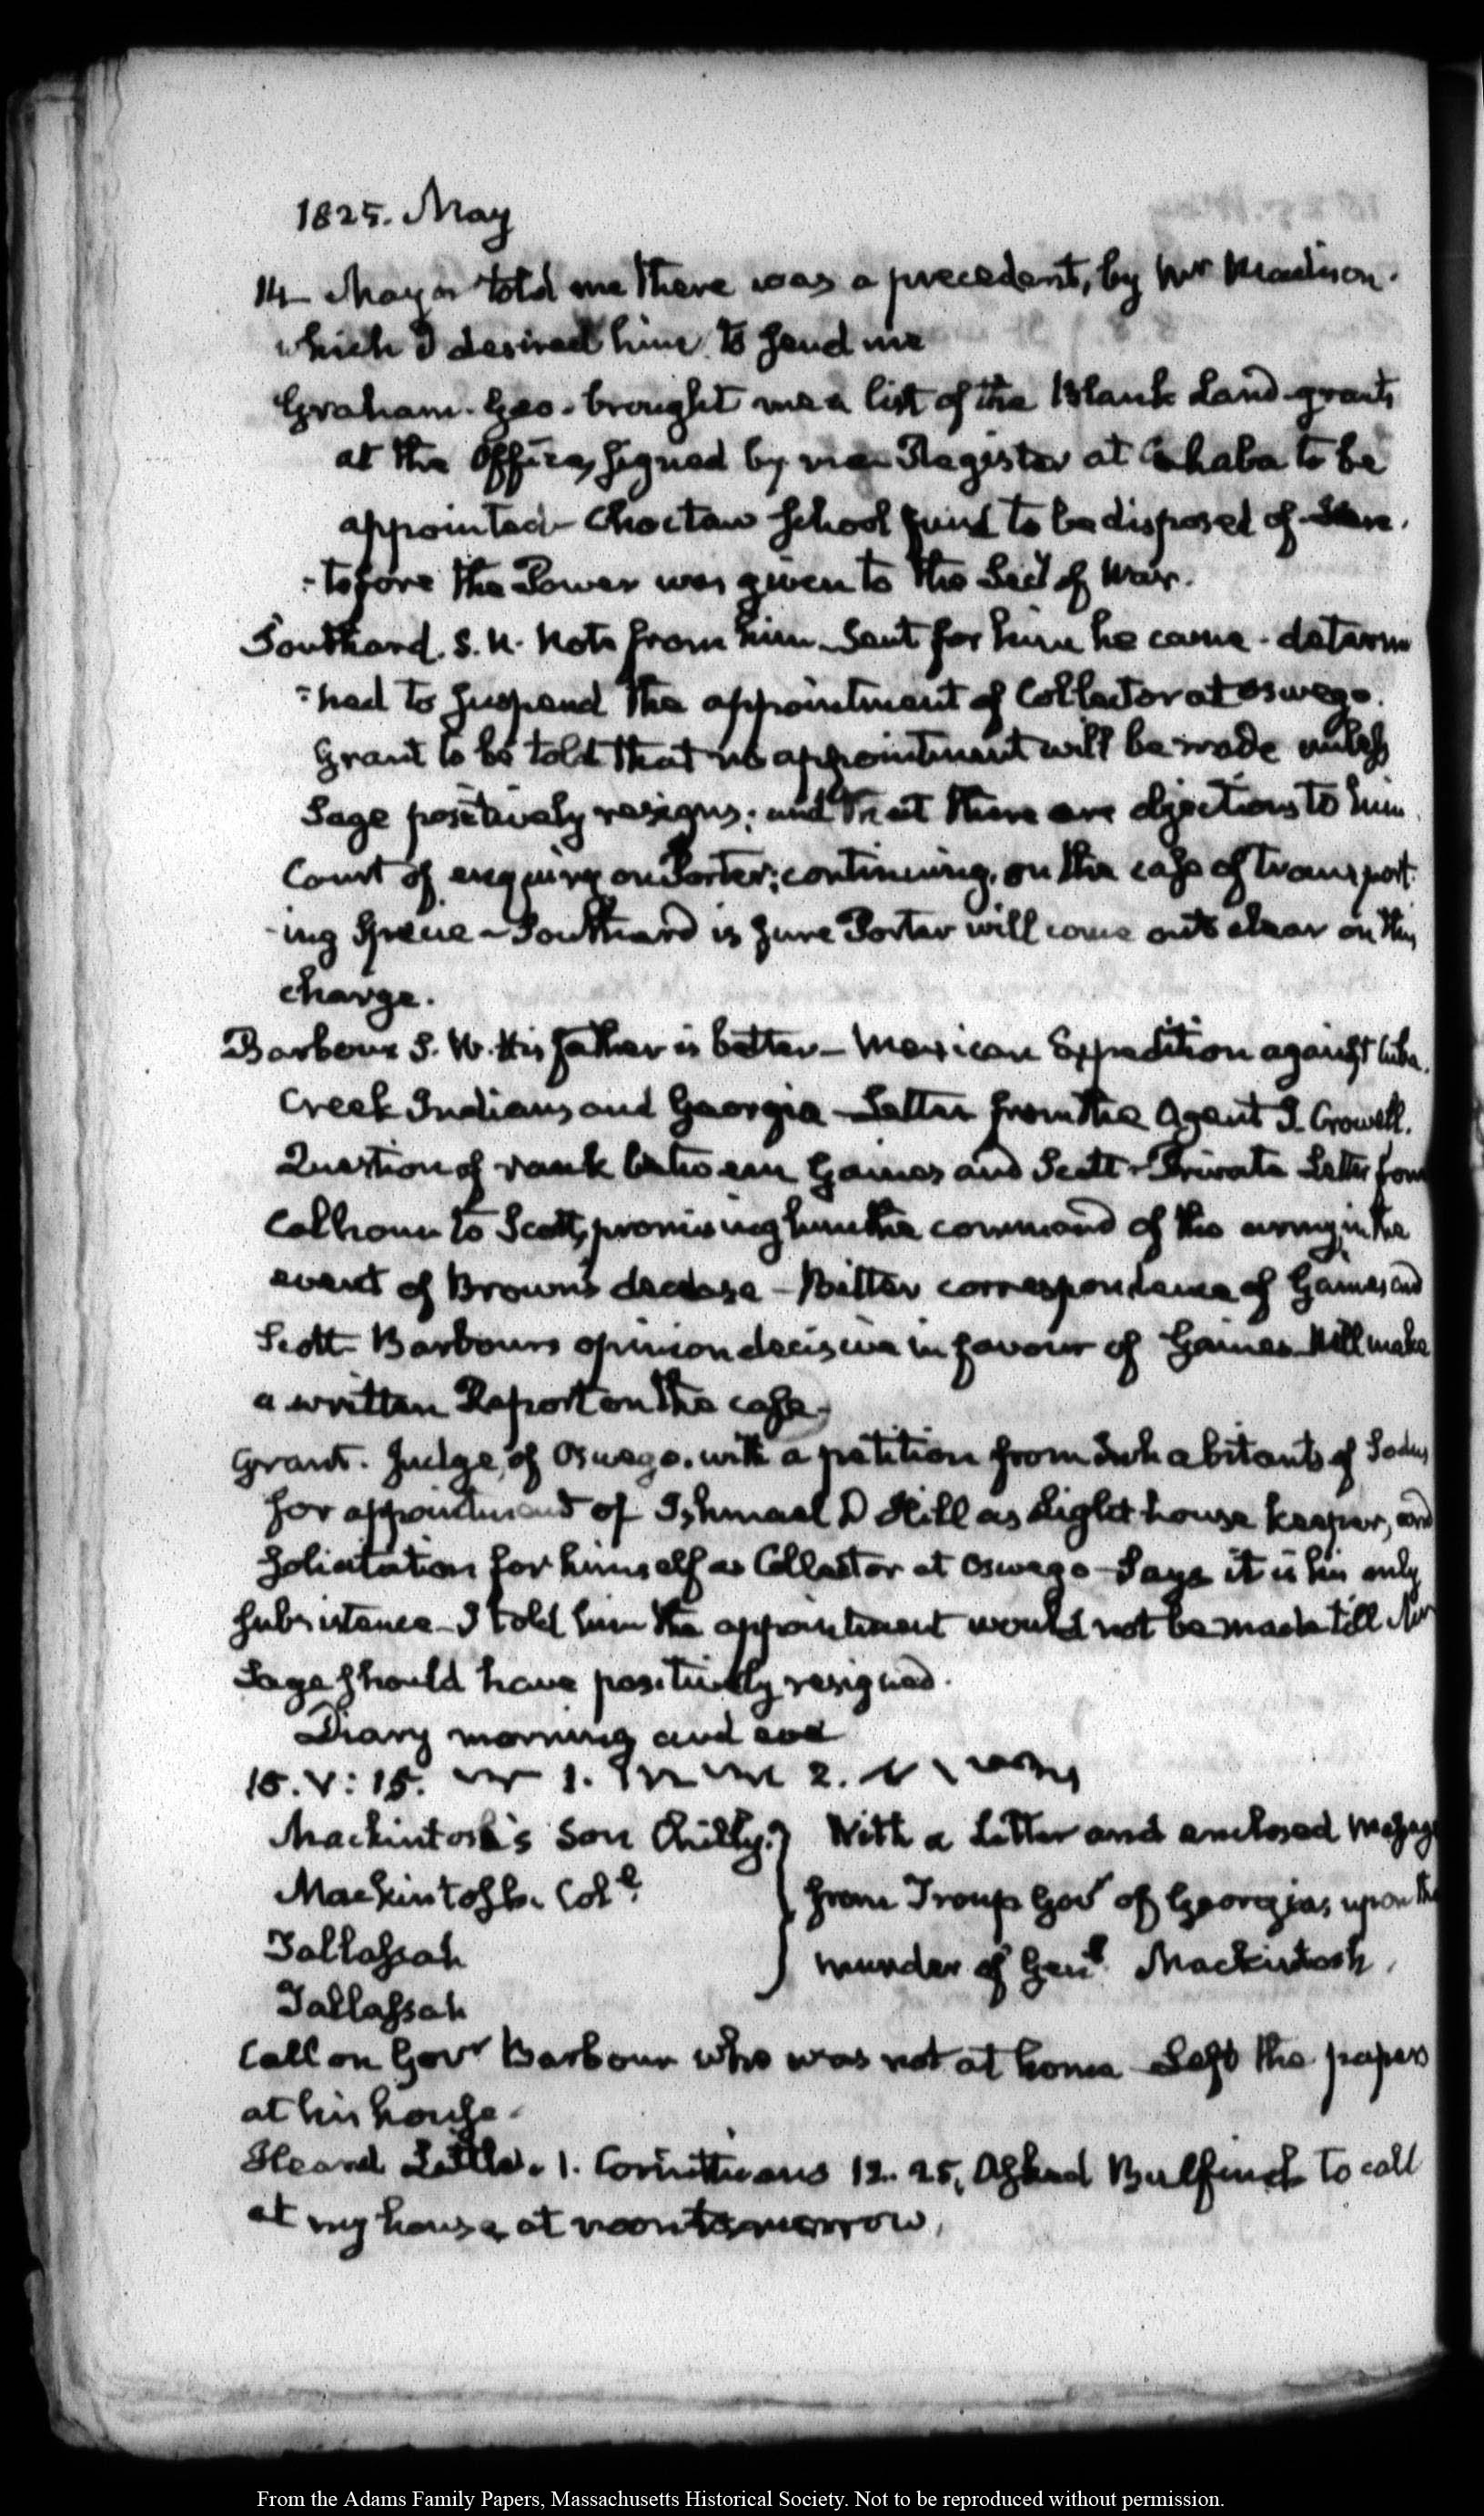 1825. May
14 Mayor told me there was a precedent, by Mr Madison.
which I desired him to send me
Graham. Geo. brought me a list of the Blank Land-grants
at the Office, signed by me Register at Cahaba to be
appointed- Choctaw School fund to be disposed of
-tofore the Power was given to the Secy of War.
Southard. S. N. Note from him. Sent for him he came - determ
=ned to suspend the appointment of Collector at Oswego.
Grant to be told that no appointment will be made unless
Sage positively resigns; and that there are objections to him
Court of enquiry on Porter; continuing, on the case of transport
-ing Specie - Southard is sure Porter will come out clear on this
charge.
Barbour S. W. His father is better - Mexican Expedition against Cuba.
Creek Indians and Georgia - Letter from the Agent J. Crowell.
Question of rank between Gaines and Scott - Private Letter from
Calhoun to Scott, promising him the command of the army in the
event of Brown's decease - Bitter correspondence of Gaines and
Scott - Barbour's opinion decisive in favour of Gaines. Will make
a written Report on the case.
Grant. Judge, of Oswego. with a petition from Inhabitants of Sodus
for appointment of Ishmael D Hill as Light house keeper, and
solicitation for himself as Collector at Oswego - Says it is his only
subsistence - I told him the appointment would not be made till Mr
Sage should have positively resigned.
Diary morning and eve
15. V: 15. 1. 2.
Mackintosh's Son Chilly. With a Letter and enclosed Message
Mackintosh. Col. from Troup Govr of Georgia, upon the
Tallassah murder of Genl Mackintosh.
Tallassah
Call on Govr Barbour who was not at home - Left the papers
at his house.
Heard Little. 1. Corinthians 12. 25. Asked Bulfinch to call
at my house at noon tomorrow.
From the Adams Family Papers, Massachusetts Historical Society. Not to be reproduced without permission.